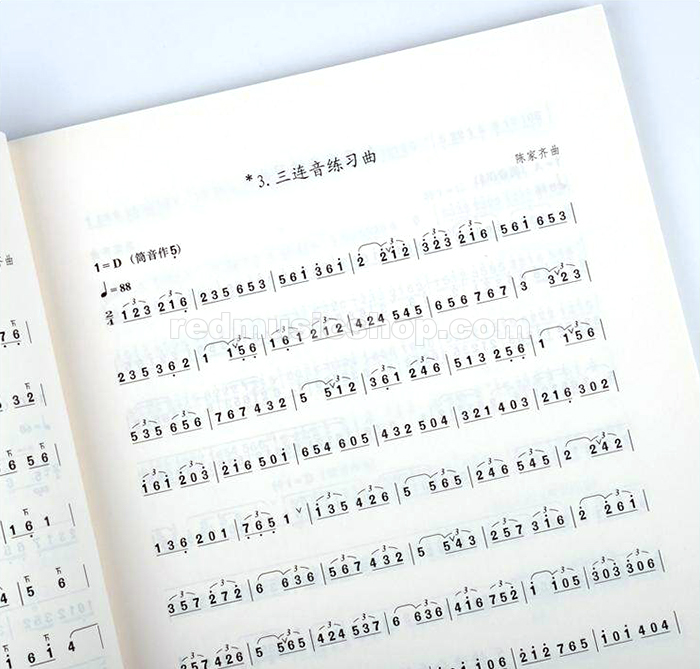 *3.三连音练习曲
陈家齐曲
1=D (筒音作5̣)
♩=88
2/4 1 2 3 2 1 6̣ | 2 3 5 6 5 3 | 5 6 i 3 6 i | 2 2 i 2 | 3 2 3 2 i 6 | 5 6 i 6 5 3 |
2 3 5 3 6̣ 2 | 1 1 5̣ 6̣ | 1 6̣ 1 2 1 2 | 4 2 4 5 4 5 | 6 5 6 7 6 7 | 3 3 2 3 |
redmusicshop.com
5 3 5 6 5 6 | 7 6 7 4 3 2 | 5 5 1 2 | 3 6̣ 1 2 4 6 | 5 1 3 2 5̣ 6̣ | 1 1 5̣ 6̣ |
i 6 i 2 0 3 | 2 i 6 5 0 i | 6 5 4 6 0 5 | 4 3 2 5 0 4 | 3 2 1 4 0 3 | 2 1 6̣ 3 0 2 |
1 3 6̣ 2 0 1 | 7̣ 6̣ 5̣ 1 ∨ | 1 3 5 4 2 6 | 5 5 6 5 | 2 4 6 5 4 5 | 2 2 4 2 |
3 5 7 2 7 2 | 6 6 3 6 | 5 6 7 4 3 2 | 5 5 4 3 | 2 5 7 3 1 6 | 2 2 6 i |
2 5 7 4 2 6 | 5 5 6 5 | 4 2 4 5 3 7 | 6 6 3 6 | 4 1 6 7 5 2 | i i 0 5 | 3 0 3 3 0 6 |
0 6 | 2 i 2 7 6 5 | i 0 i 4 0 4 |
曲
7 6 |
3 2 |
5 6 |
1 6 1 |
4 | 5 6 |
i 6 i 4